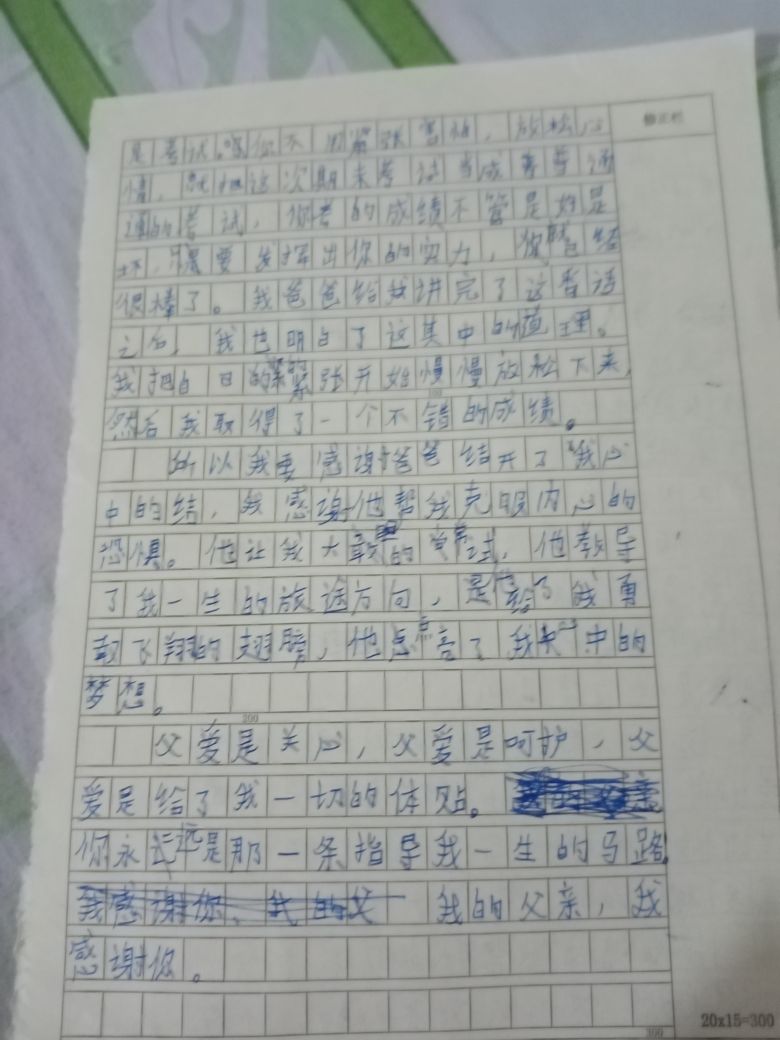 是考试。你不用紧张害怕，放松心 修正栏
情，就把这次期末考试当成普普通
通的考试，你考的成绩不管是好是
坏，只要发挥出你的实力，你就已经
很棒了。我爸爸给我讲完了这番话
之后，我也明白了这其中的道理。
我把自己的紧张开始慢慢放松下来，
100
然后我取得了一个不错的成绩。
所以我要感谢爸爸结开了我心
中的结，我感谢他帮我克服内心的
恐惧。他让我大敢的尝试，他教导
了我一生的旅途方向，是他给了我勇
敢飞翔的翅膀，他点亮了我心中的
梦想。
200
父爱是关心，父爱是呵护，父
爱是给了我一切的体贴。
你永远是那一条指导我一生的马路
我感谢你、我的父 我的父亲，我
感谢你。
300
20x15=300